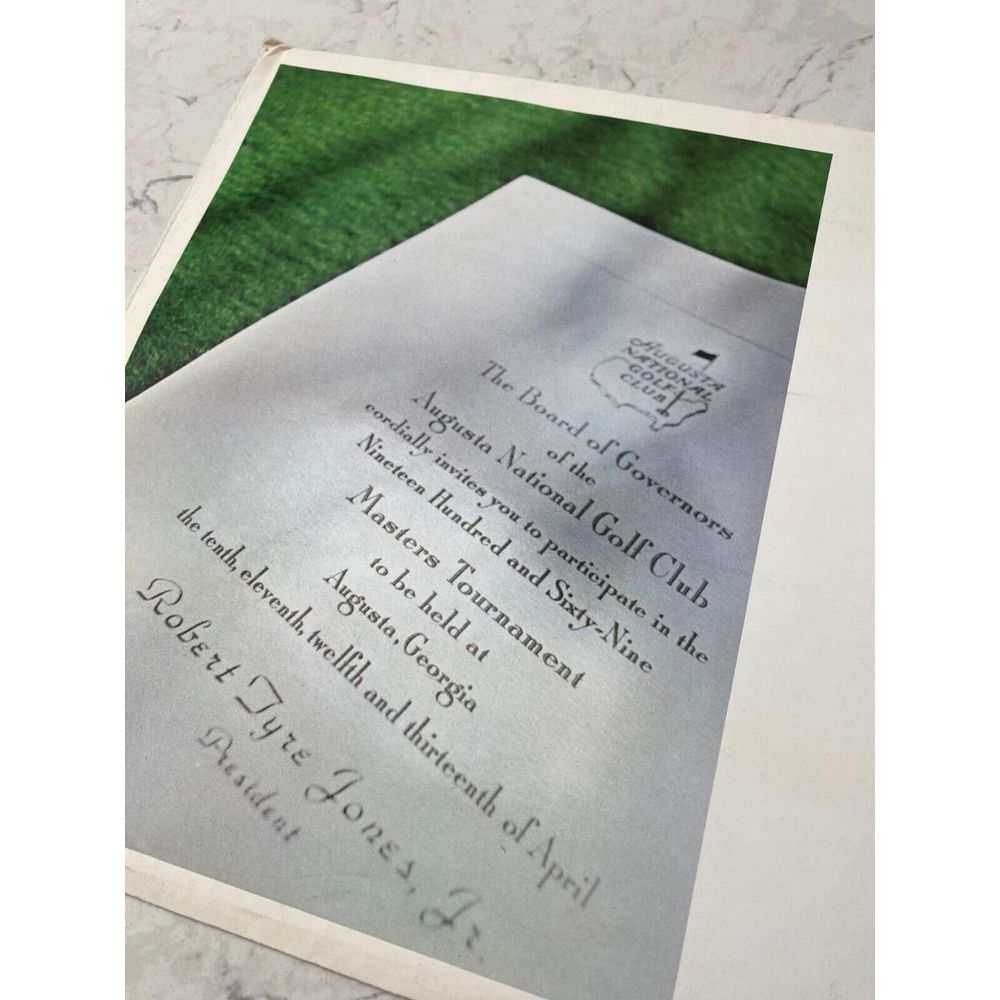 AUGUSTA
NATIONAL
GOLF
CLUB
The Board of Governors
of the
Augusta National Golf Club
cordially invites you to participate in the
Nineteen Hundred and Sixty-Nine
Masters Tournament
to be held at
Augusta, Georgia
the tenth, eleventh, twelfth and thirteenth of April
Robert Tyre Jones, Jr.
President